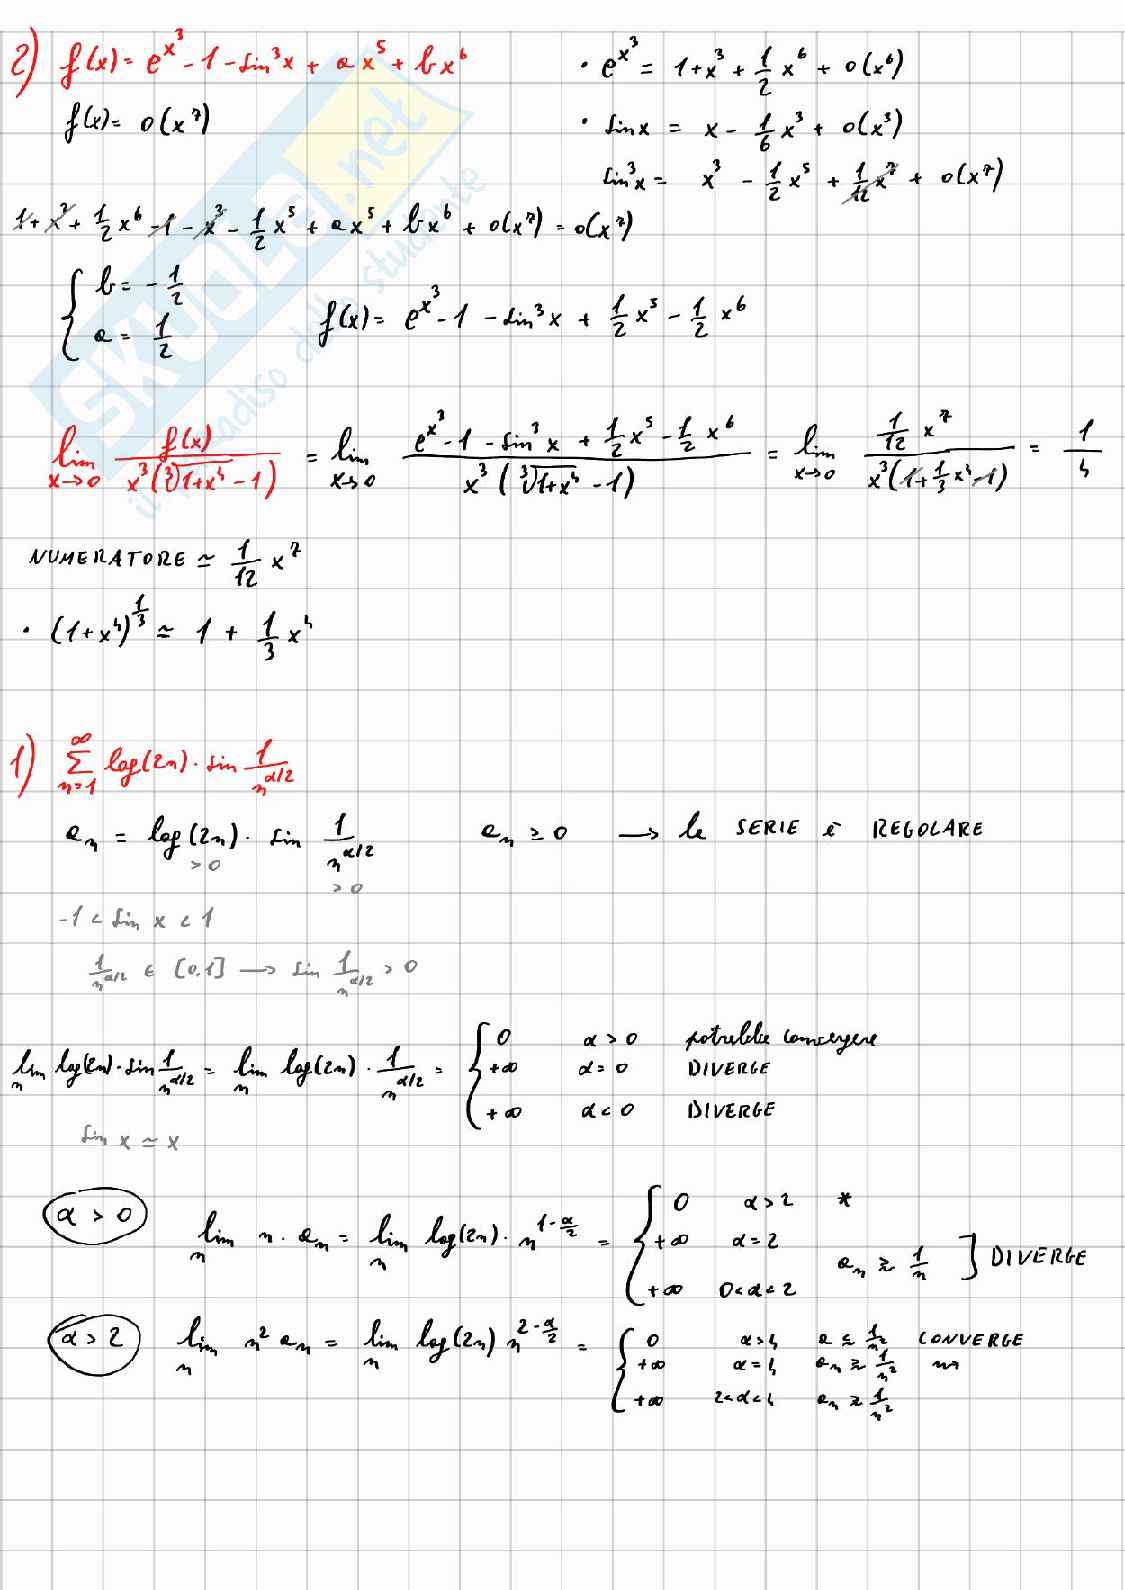 2) f(x) = e^{x^3} - 1 - sin^3 x + a x^5 + b x^6
• e^{x^3} = 1 + x^3 + 1/2 x^6 + o(x^6)
f(x) = o(x^7)
• sin x = x - 1/6 x^3 + o(x^3)
sin^3 x = x^3 - 1/2 x^5 + 1/12 x^7 + o(x^7)
1 + x^2 + 1/2 x^6 - 1 - x^3 - 1/2 x^5 + a x^5 + b x^6 + o(x^7) = o(x^7)
{ b = - 1/2
a = 1/2
f(x) = e^{x^3} - 1 - sin^3 x + 1/2 x^5 - 1/2 x^6
lim x→0 f(x) / x^3 (∛(1+x^4) - 1) = lim x→0 (e^{x^3} - 1 - sin^3 x + 1/2 x^5 - 1/2 x^6) / x^3 (∛(1+x^4) - 1) = lim x→0 (1/12 x^7) / x^3 (1 + 1/3 x^4 - 1) = 1/4
NUMERATORE ≃ 1/12 x^7
• (1 + x^4)^{1/3} ≃ 1 + 1/3 x^4
1) ∑_{n=1}^{∞} log(2n) · sin 1/n^{α/2}
a_n = log(2n) · sin 1/n^{α/2} a_n ≥ 0 → la SERIE è REGOLARE
> 0 > 0
-1 < sin x < 1
1/n^{α/2} ∈ [0,1] → sin 1/n^{α/2} > 0
lim_n log(2n) · sin 1/n^{α/2} = lim_n log(2n) · 1/n^{α/2} = { 0 α > 0 potrebbe convergere
+∞ α = 0 DIVERGE
+∞ α < 0 DIVERGE
sin x ≃ x
α > 0
lim_n n · a_n = lim_n log(2n) · n^{1-α/2} = { 0 α > 2 *
+∞ α = 2
+∞ 0 < α < 2 a_n ≳ 1/n ] DIVERGE
α > 2
lim_n n^2 a_n = lim_n log(2n) n^{2-α/2} = { 0 α > 4 a ≲ 1/n^2 CONVERGE
+∞ α = 4 a_n ≳ 1/n^2
+∞ 2 < α < 4 a_n ≳ 1/n^2
SKUOLA.net
il paradiso dello studente